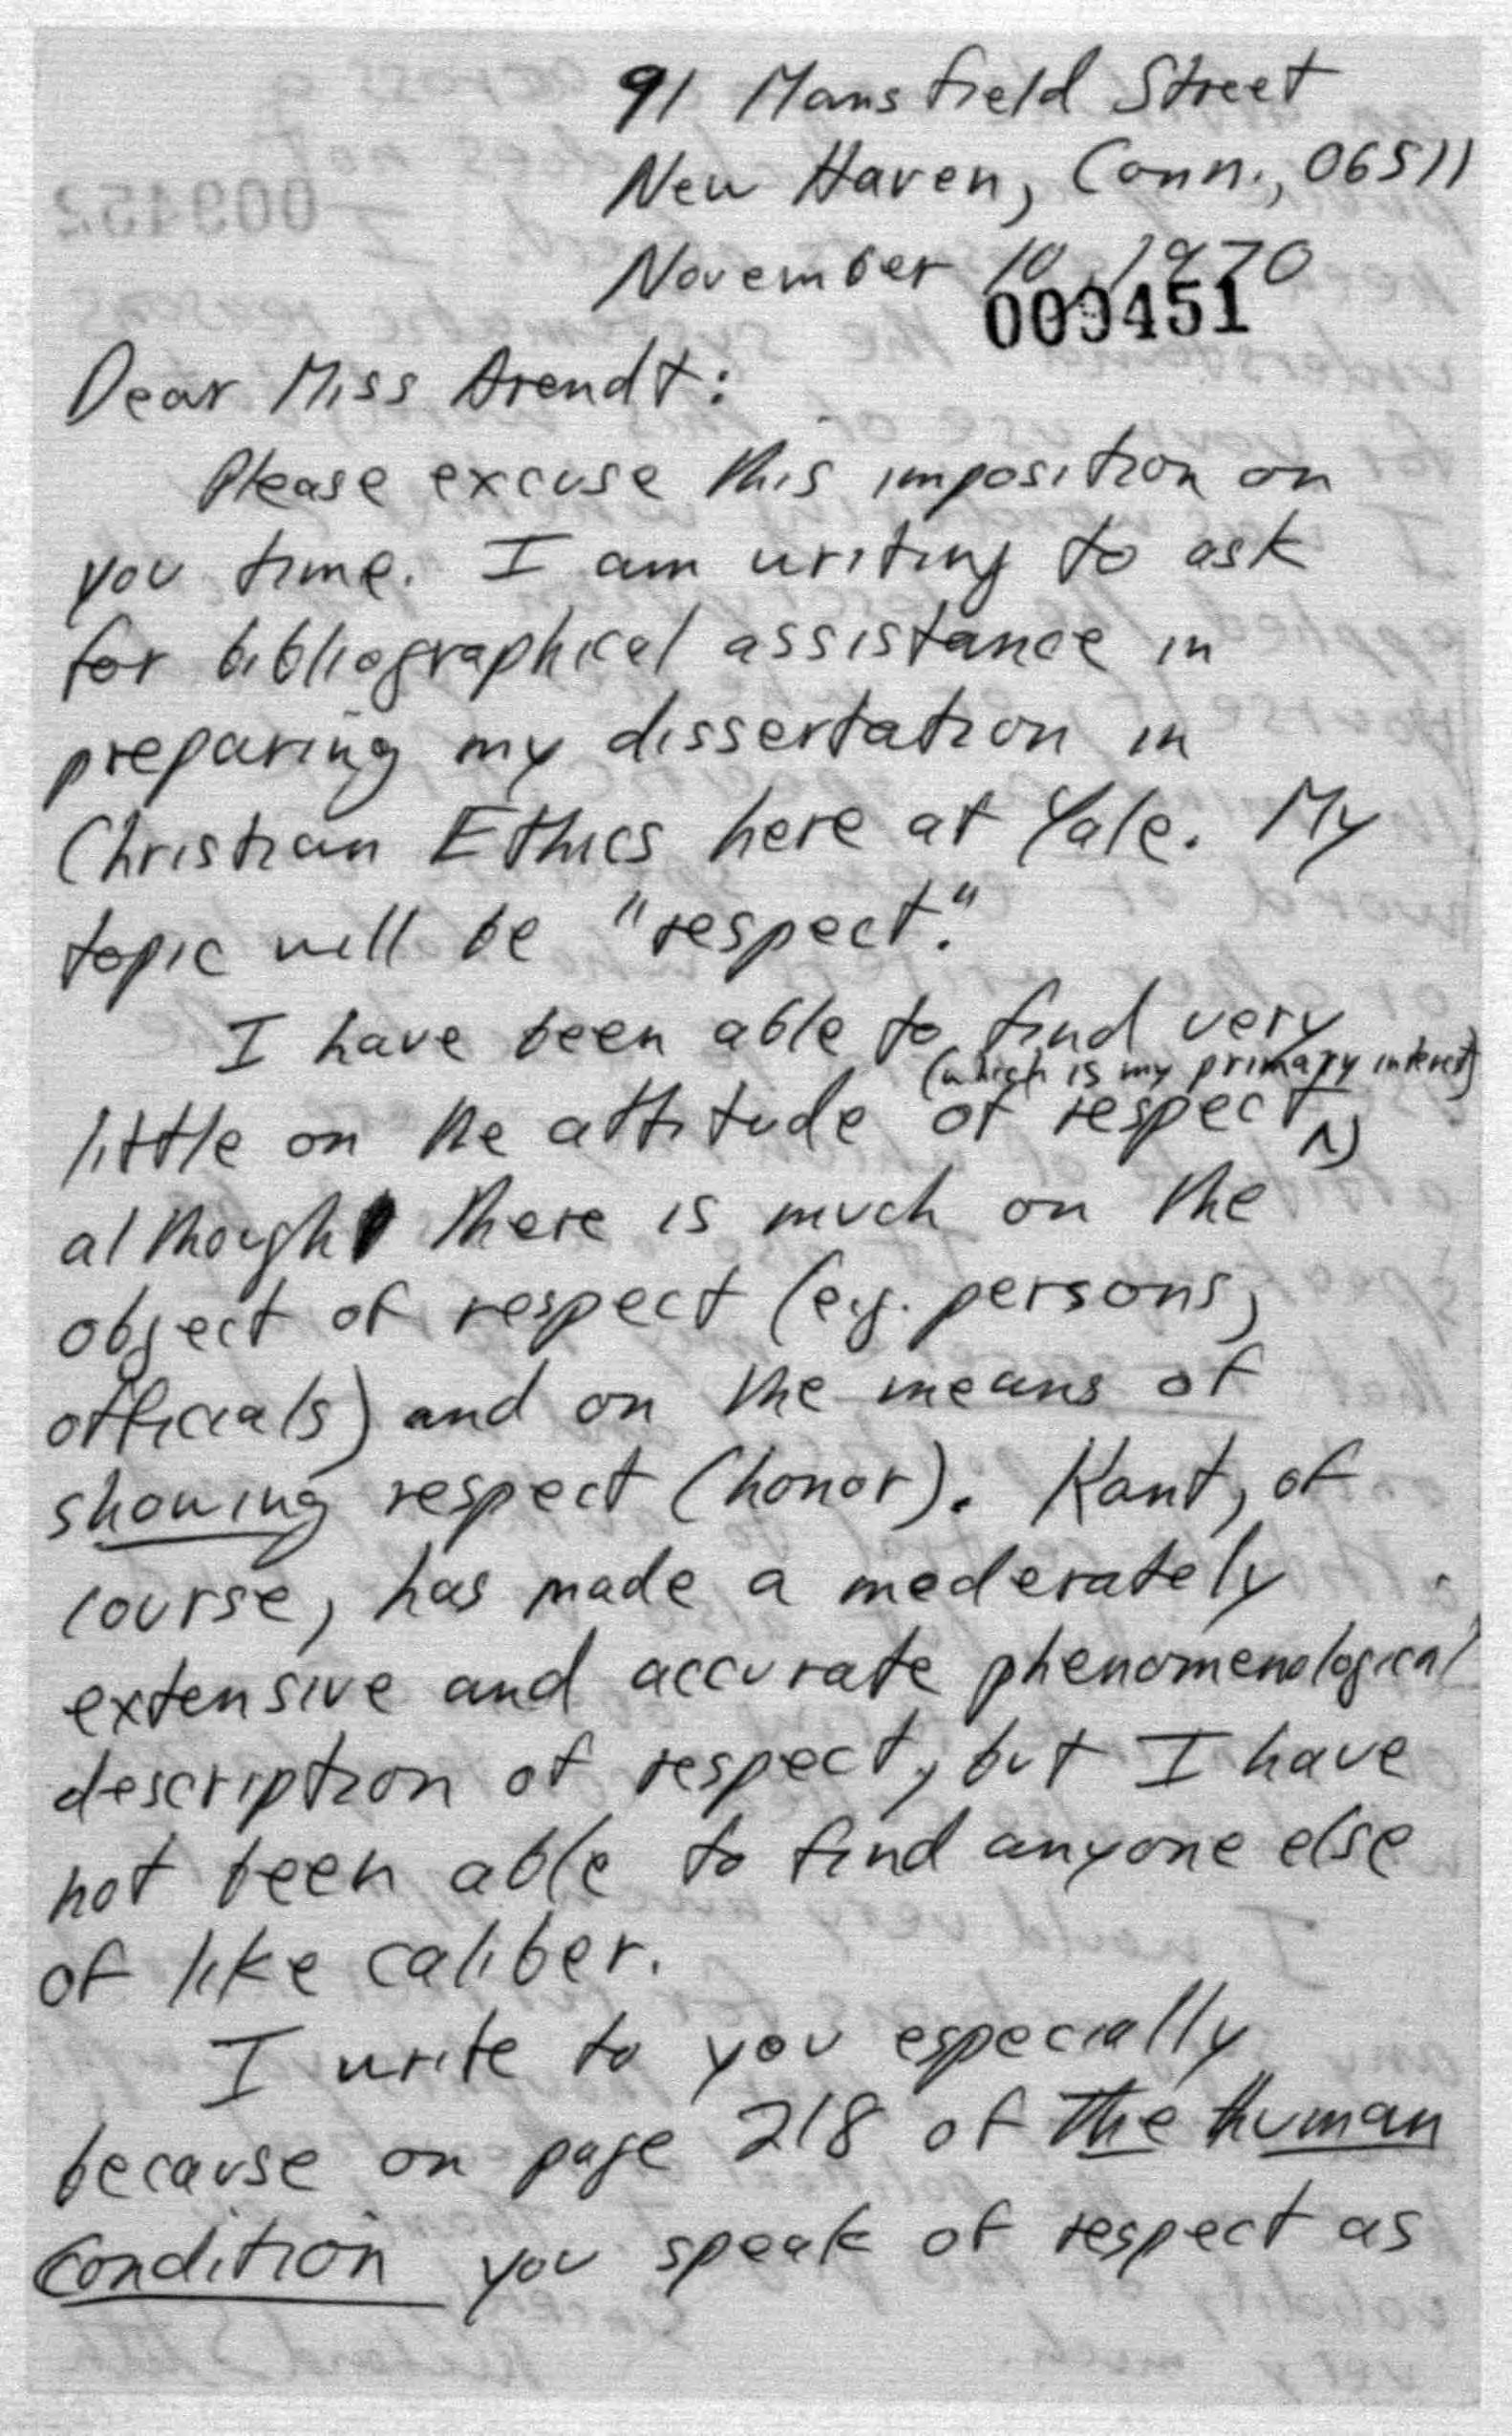 91 Mansfield Street
New Haven, Conn., 06511
November 10, 1970
009451
Dear Miss Arendt:
Please excuse this imposition on
you time. I am writing to ask
for bibliographical assistance in
preparing my dissertation in
Christian Ethics here at Yale. My
topic will be "respect."
I have been able to find very
(which is my primary interest)
little on the attitude of respect,
although there is much on the
object of respect (e.g. persons,
officials) and on the means of
showing respect (honor). Kant, of
course, has made a moderately
extensive and accurate phenomenological
description of respect, but I have
not been able to find anyone else
of like caliber.
I write to you especially
because on page 218 of the Human
Condition you speak of respect as